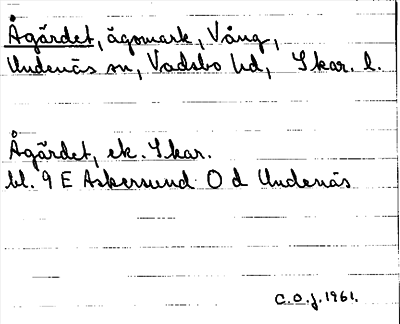 Ågärdet, ägomark, Vång,
Undenäs sn, Vadsbo hd, Skar. l.
Ågärdet, ek. Skar.
bl. 9 E Askersund O d Undenäs
C.O.J. 1961.